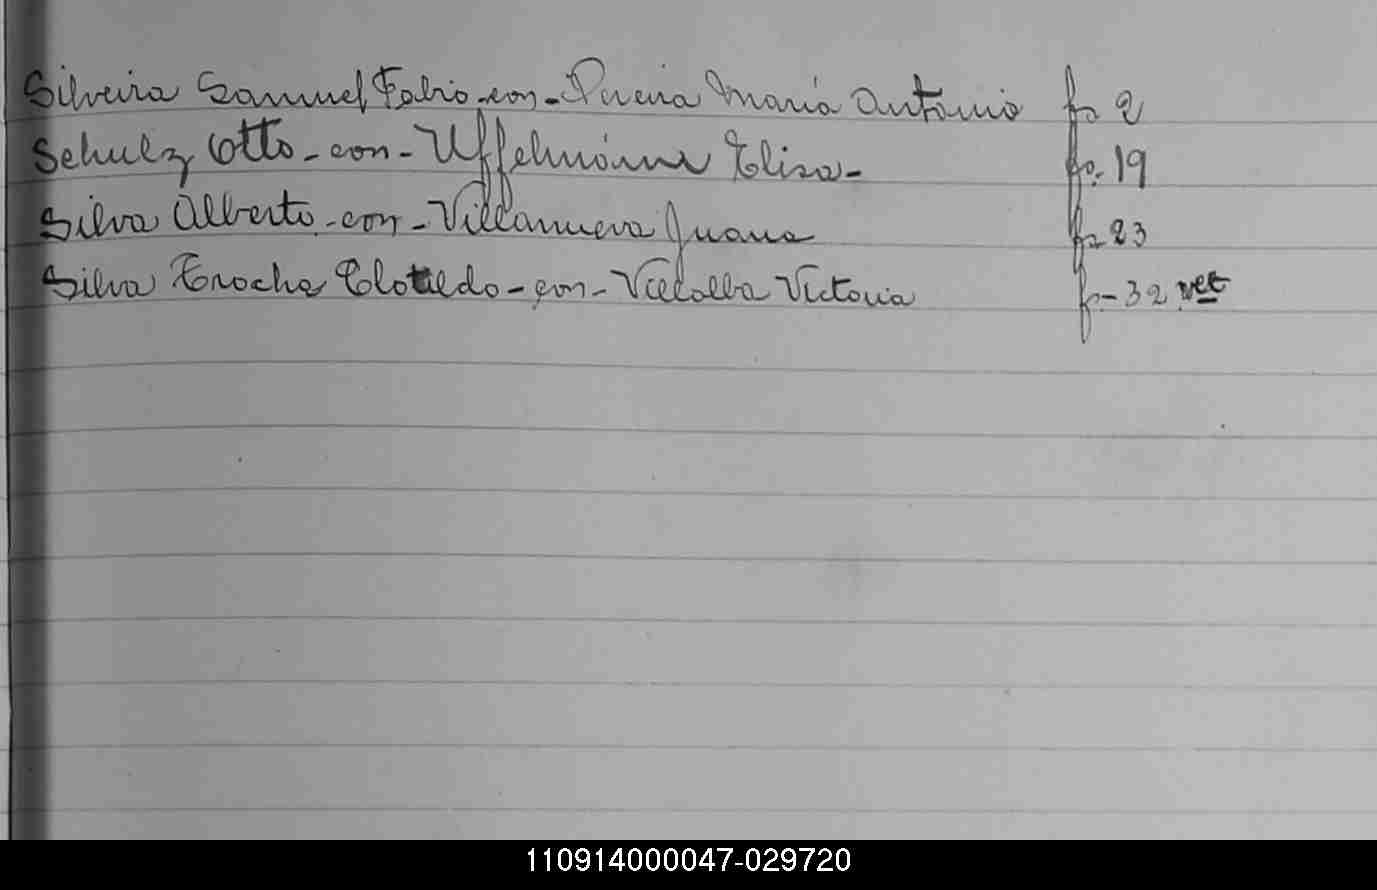 Silveira Samuel Fabio - con - Pereira María Antonia fo 2
Schulz Otto - con - Uffelmann Elisa - fo. 19
Silva Alberto - con - Villanueva Juana fo 23
Silva Trocha Clotildo - con - Villalba Victoria fo - 32 vto
110914000047-029720